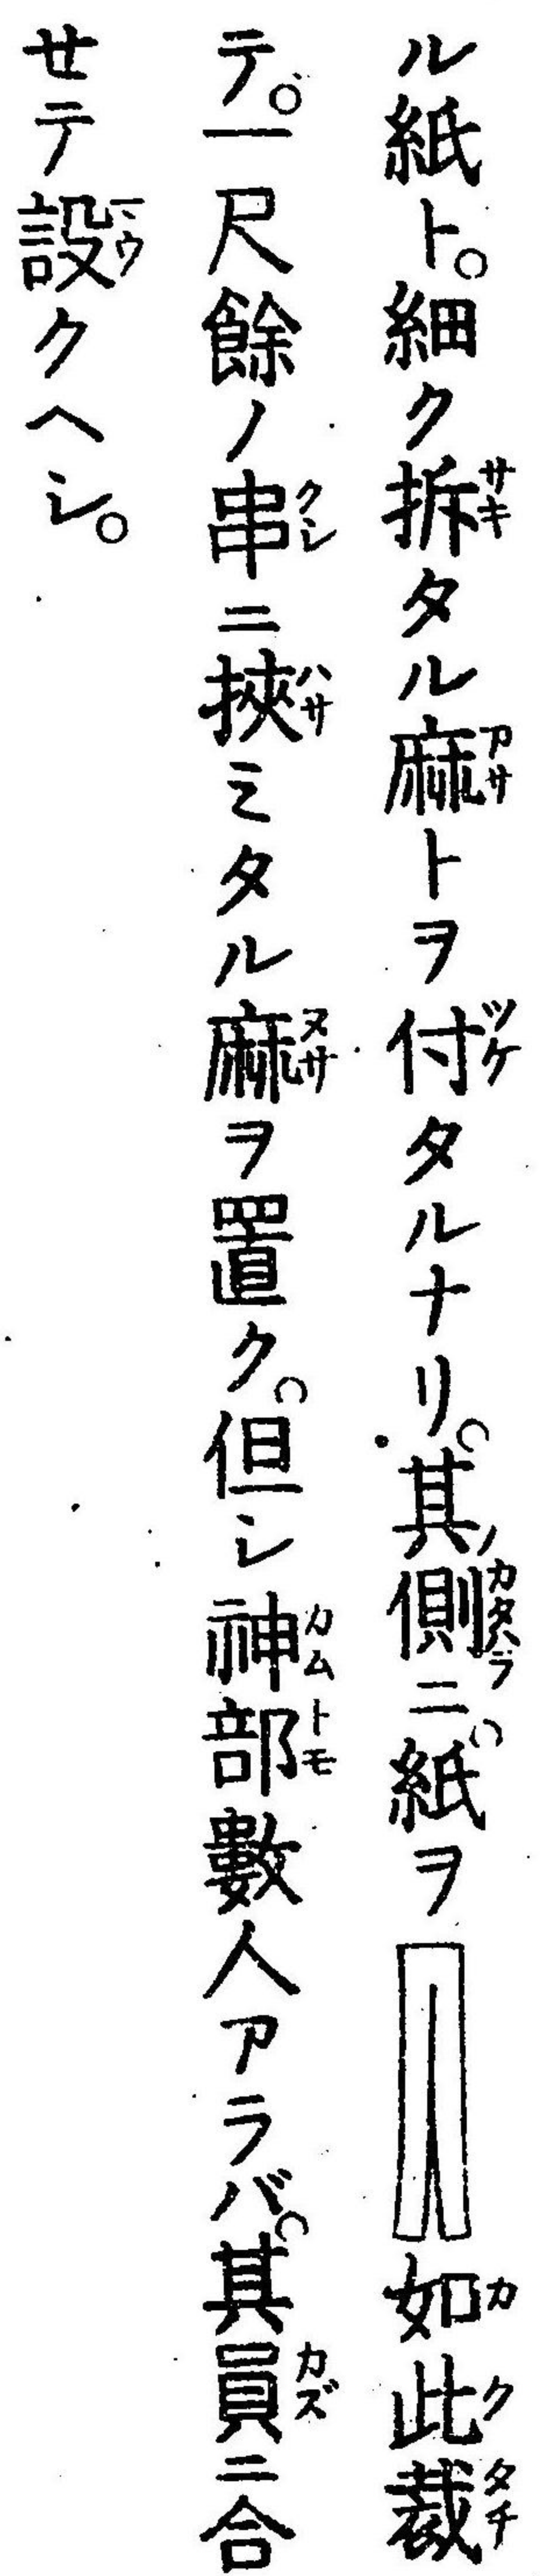 ル紙ト。細ク拆タル麻トヲ付タルナリ。其側ニ。紙ヲ如此裁
テ。一尺餘ノ串ニ挾ミタル麻ヲ置ク。但シ神部數人アラバ。其員ニ合
せテ設クヘシ。